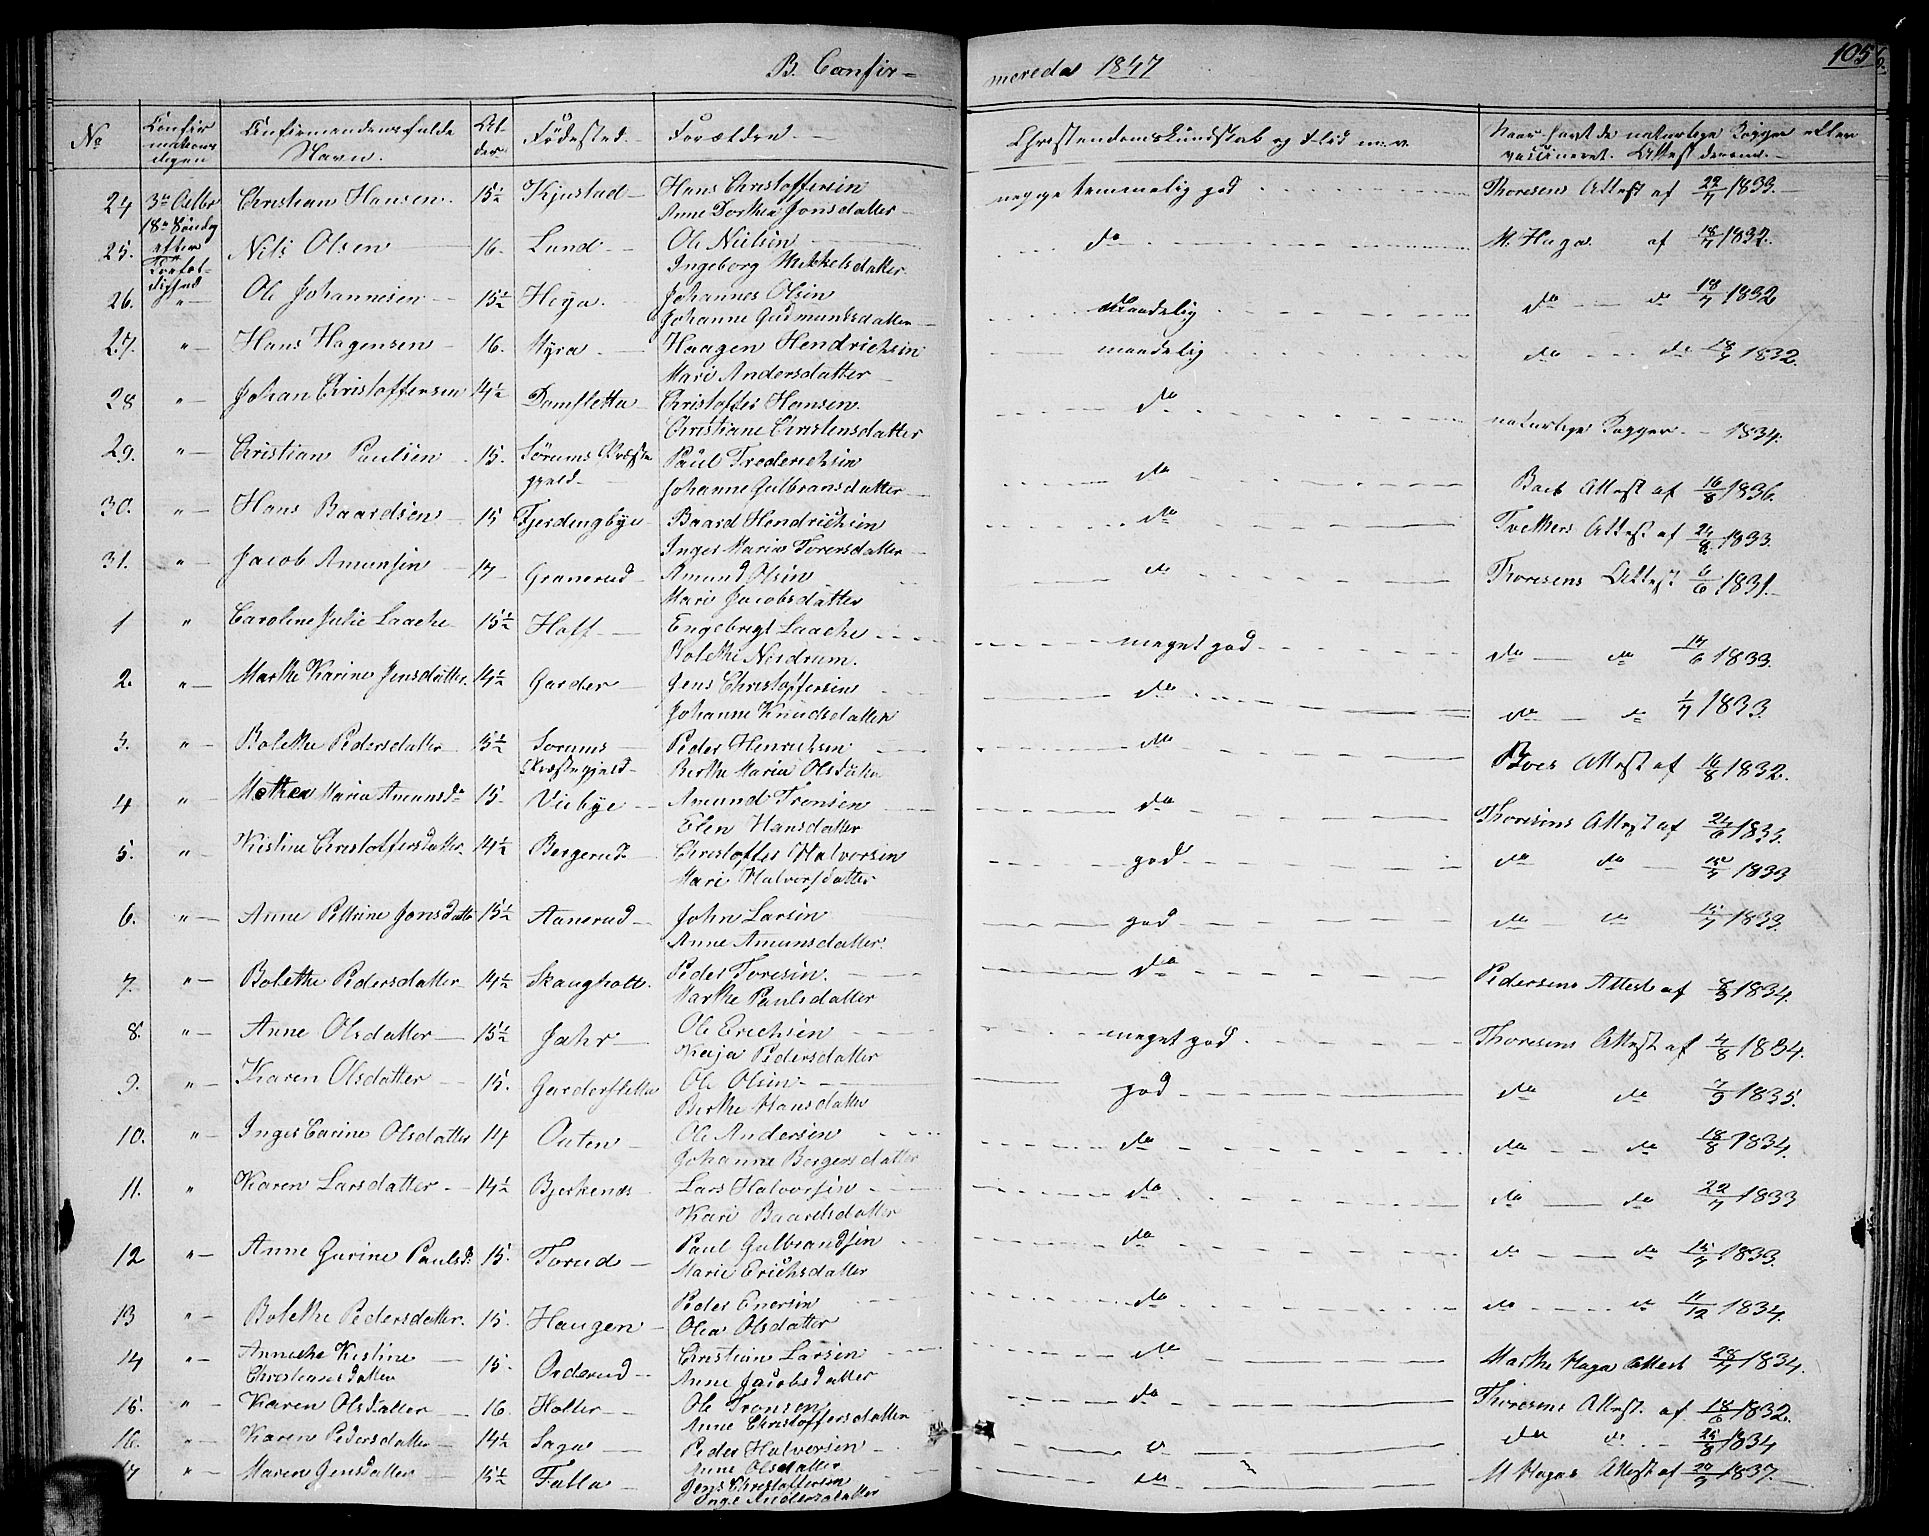 B. Confir= mereda 1847
105
No
Confirmations dagen
Confirmandens fulde Navn.
Alder
Fødested.
Forældre.
Christendomskundskab og Flid m.v.
Naar havt de naturlige Kopper eller vaccineret. Attest derom.
24 3de Octbr Christian Hansen. 15½ Kjustad Hans Christoffersen Thoresens Attest af 22/7 1833.
Anne Dorthea Jonsdatter
18de Søndag efter Trefoldighed
25. Nils Olsen 16. Lund Ole Nielsen do M. Haga af 18/7 1832.
Ingeborg Mikkelsdatter
26. " Ole Johannesen 15½ Heya. Johannes Olsen maadelig do do 18/7 1832
Johanne Gudmundsdatter
27. " Hans Hagensen 16. Myra Haagen Hendrichsen maadelig do do 18/7 1832.
Mari Andersdatter
28 " Johan Christoffersen 14½ Damsletta Christoffer Hansen. do naturlige Kopper. 1834.
Christiane Christensdatter
29. " Christian Paulsen 15. Sørums Præstegjeld Paul Frederichsen do Attest af 16/8 1836.
Johanne Gulbransdatter
30. " Hans Baardsen 15 Fjerdingbye Baard Hendrichsen do Attest af 24/8 1833.
Inger Maria Toresdatter
31. " Jacob Amunsen 17 Granerud Amund Olsen do Thoresens Attest 6/6 1831.
Mari Jacobsdatter
1 " Caroline Julie Laache 15½ Hoff Engebregt Laache meget god do do 17/6 1833.
Bolethe Nerdrum.
2. " Marthe Karine Jensdatter. 14½ Garder Jens Christoffersen do do do 1/7 1833.
Johanne Knudsdatter
3. " Bolethe Pedersdatter 15½ Sørums Præstegjeld Peder Henrichsen do Attest af 16/8 1832.
Berthe Maria Olsdatter
4 " Mathea Maria Amunsdr 15. Viebye Amund Tronsen do Thoresens Attest af 24/6 1833.
Elen Hansdatter
5. " Kistine Christoffersdatter. 14½ Borgerud Christoffer Halvorsen god do do 1833
Mari Halvorsdatter
6. " Anne Pettrine Jonsdatter 15½ Aanerud John Larsen god do do 15/7 1833.
Anne Amunsdatter.
7. " Bolethe Pedersdatter 14½ Skaugholt. Peder Toresen. do Pedersens Attest af 8/9 1834.
Marthe Paulsdatter
8. " Anne Olsdatter 15½ Jahr Ole Erichsen meget god Thoresens Attest af 4/8 1834.
Kaja Pedersdatter
9. " Karen Olsdatter 15. Gardersletta Ole Olsen god do do 7/9 1835.
Berthe Hansdatter
10. " Inger Carine Olsdatter 14 Outen Ole Andersen do do do 18/8 1834.
Johanne Borgersdatter
11. " Karen Larsdatter 14½ Bjerkenes Lars Halvorsen do do do 22/7 1833
Kari Baardsdatter
12 " Anne Gurine Paulsdr 15. Torud Paul Gulbrandsen do do do 15/7 1833.
Marie Erichsdatter
13 " Bolethe Pedersdatter. 15. Haugen Peder Enersen do do do 11/12 1834.
Olea Olsdatter
14 " Annethe Kistine Christiansdatter 15. Orderud Christian Larsen do Marthe Haga Attest 28/7 1834.
Anne Jacobsdatter
15. " Karen Olsdatter 16. Holter Ole Tronsen do Thoresens Attest. af 18/6 1832.
Anne Christoffersdatter
16. " Karen Pedersdatter 14½ Saga Peder Halvorsen do do 25/8 1834
Anne Olsdatter
17 " Maren Jensdatter 15½ Falla Jens Christoffersen do M Hagas Attest af 20/9 1837.
Inge Andersdatter